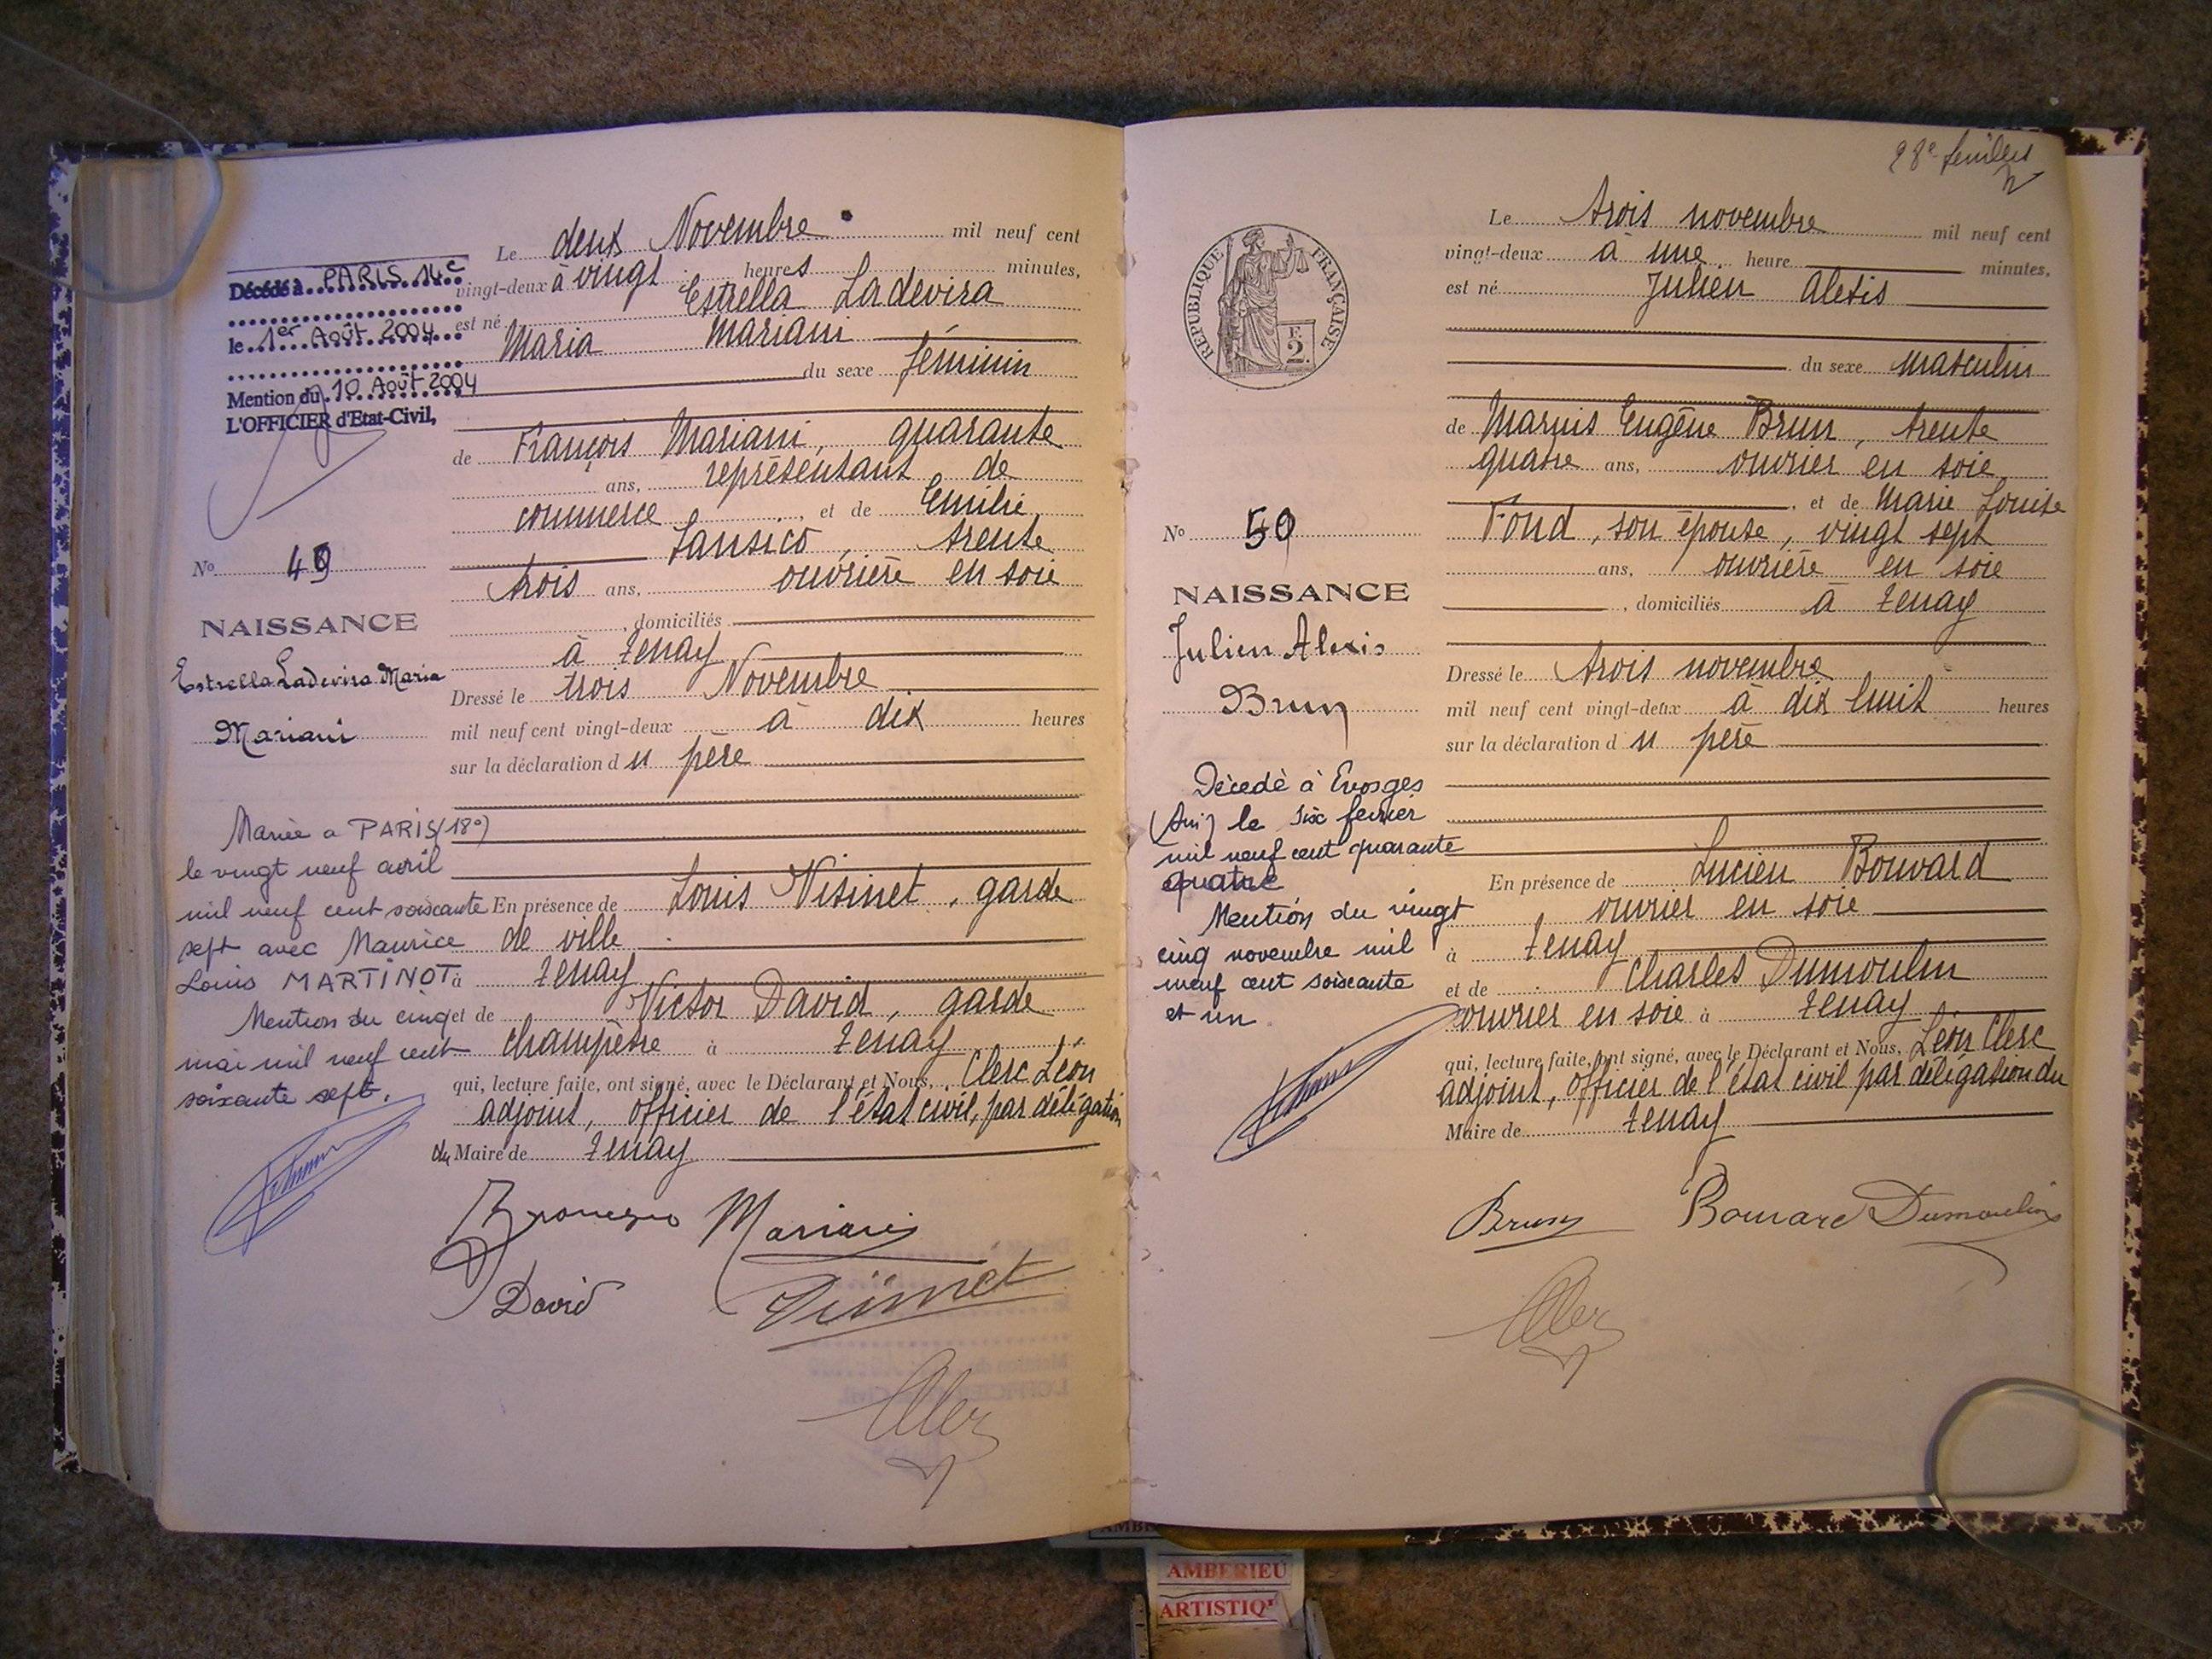 Le deux Novembre mil neuf cent
vingt-deux à vingt heures minutes,
est né Estrella Ladevira
Maria Mariani
du sexe féminin
de François Mariani, quarante
ans, représentant de
commerce, et de Emilie
Lansico, trente
trois ans, ouvrière en soie
, domiciliés
à Tenay
Dressé le trois Novembre
mil neuf cent vingt-deux à dix heures
sur la déclaration du père
En présence de Louis Visinet, garde
de ville
à Tenay
et de Victor David, garde
champêtre à Tenay
qui, lecture faite, ont signé, avec le Déclarant et Nous, Clerc Léon
adjoint, officier de l'état civil, par délégation
du Maire de Tenay
Mariani
David
Visinet
Décédé à PARIS 14e
le 1er Août 2004
Mention du 10 Août 2004
L'OFFICIER d'Etat-Civil,
No 49
NAISSANCE
Estrella Ladevira Maria
Mariani
Mariée a PARIS (18e)
le vingt neuf avril
mil neuf cent soixante
sept avec Maurice
Louis MARTINOT
Mention du cinq
mai mil neuf cent
soixante sept.
28e feuillet
Le trois novembre mil neuf cent
vingt-deux à une heure minutes,
est né Julien Alexis
du sexe masculin
de Marius Eugène Brun, trente
quatre ans, ouvrier en soie
, et de Marie Louise
Fond, son épouse, vingt sept
ans, ouvrière en soie
, domiciliés à Tenay
Dressé le trois novembre
mil neuf cent vingt-deux à dix huit heures
sur la déclaration du père
En présence de Lucien Bouvard
ouvrier en soie
à Tenay
et de Charles Dumoulin
ouvrier en soie à Tenay
qui, lecture faite, ont signé, avec le Déclarant et Nous, Léon Clerc
adjoint, officier de l'état civil par délégation du
Maire de Tenay
Brun Bouvard Dumoulin
REPUBLIQUE FRANÇAISE
F.
2.
No 50
NAISSANCE
Julien Alexis
Brun
Décedé à Evosges
(Ain) le six fevrier
mil neuf cent quarante
quatre
Mention du vingt
cinq novembre mil
neuf cent soixante
et un
AMBERIEU
ARTISTIQ